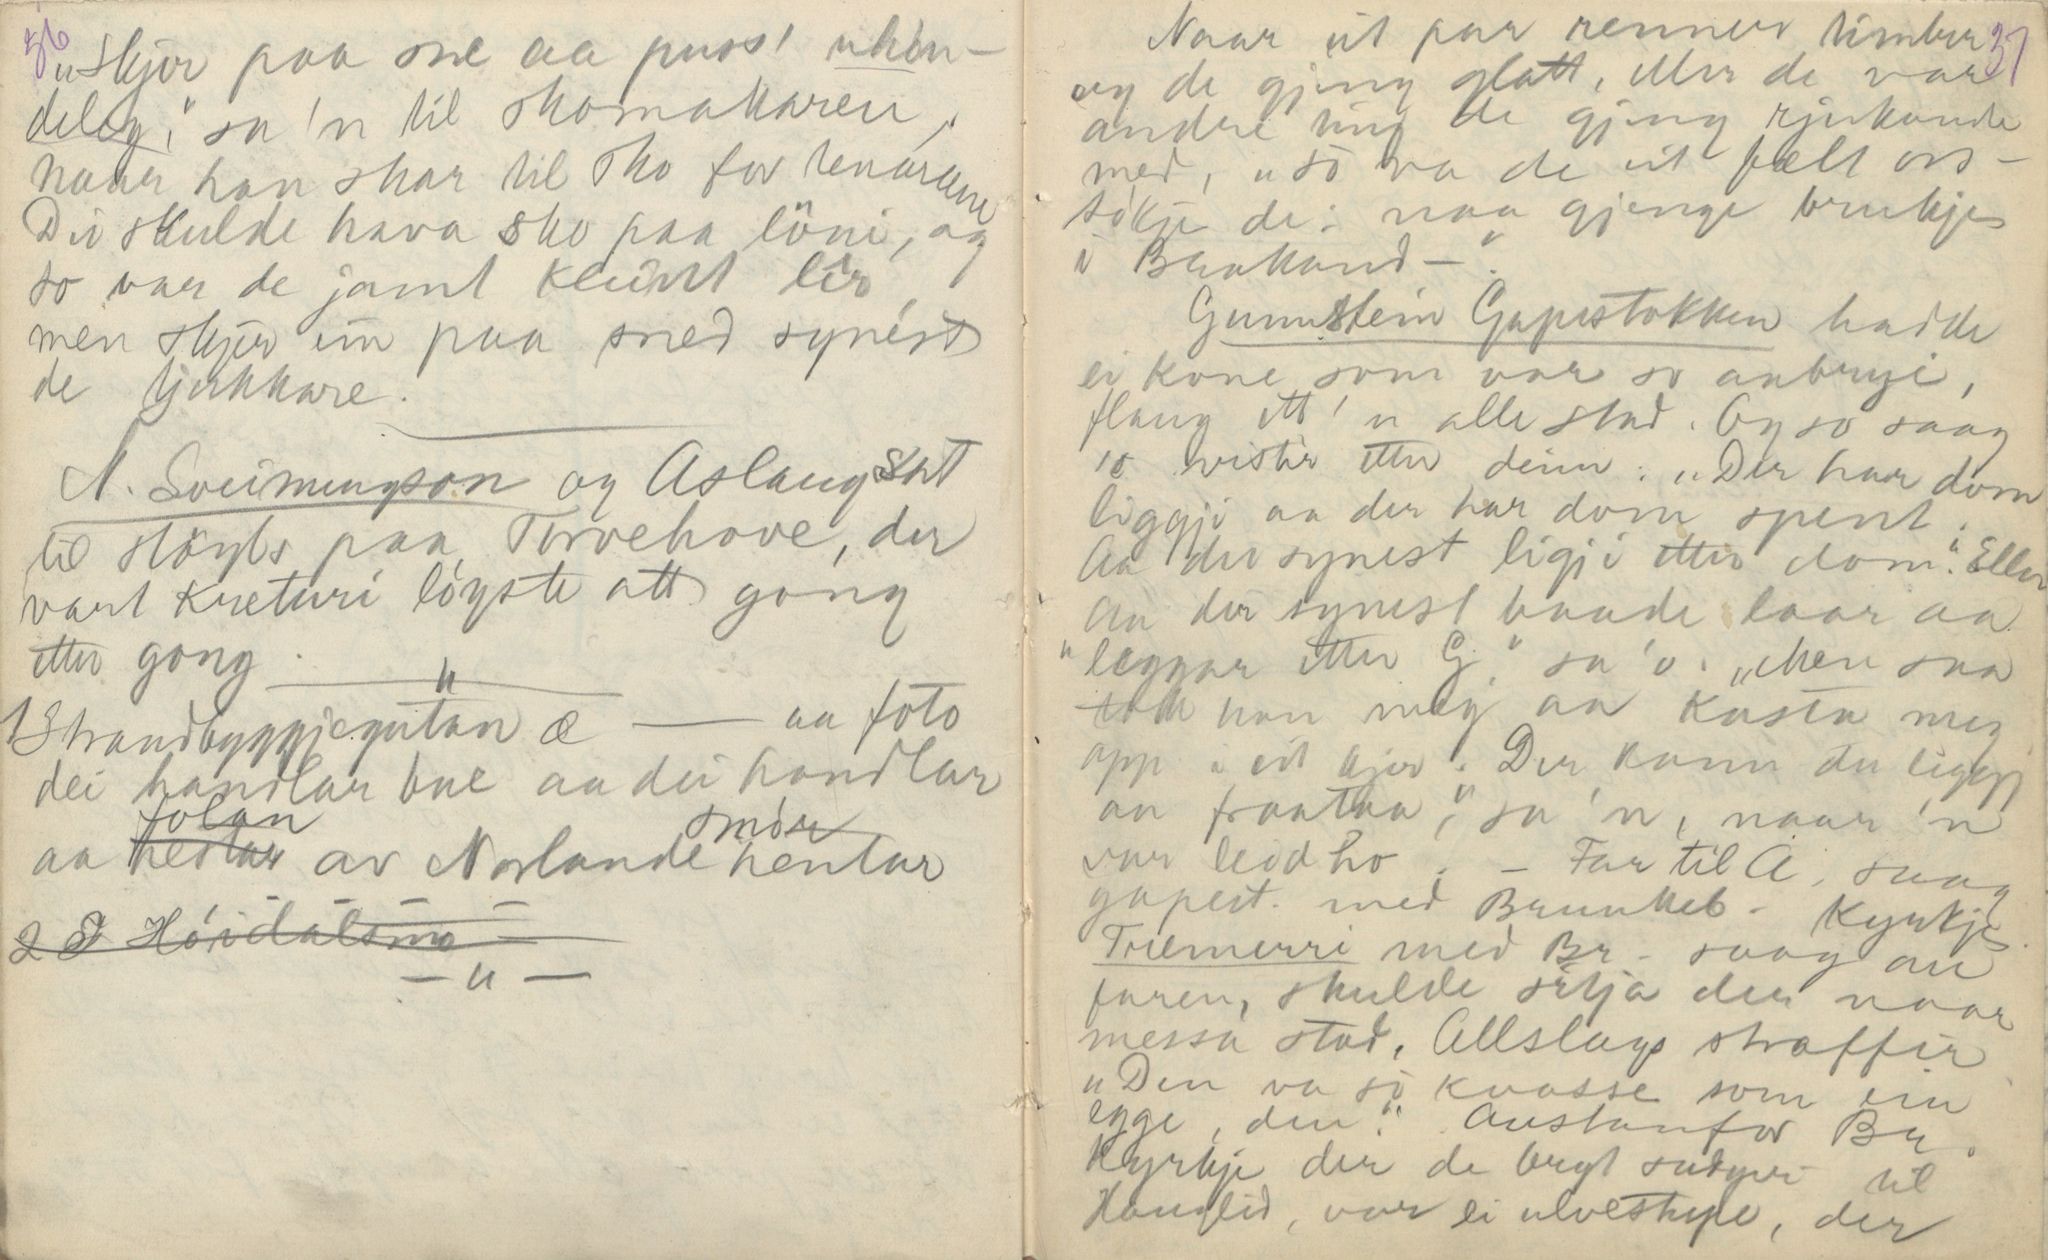 36
„Skjer paa sne aa puss' uhen-
deleg," sa 'n til skomakaren,
naar han skar til sko for tenarane
Dei skulde hava sko paa löni, og
so var de jamt kleint ler,
men skjer ein paa sned synest
de tjukkare.
N. Sveinungson og Aslaug Skst
til stöyls paa Torvehove, der
vart kreturi löyste att gong
etter gong.
"
1 Strandbyggjegutan æ — aa foto
dei handlar bue aa dei handlar
folan smör
aa hestar av Norlande hentar
2 I Höidalsmo
— " —
37
Naar eit par renner timber
og de gjeng glatt, eller de var
andre ting de gjeng rjukande
med, „so va de eit fælt os-
tökje de: naa gjenge brukjes
i Brokand —".
Gunnstein Gapestokken hadde
ei kone som var so anbryi,
flaug ett' 'n alle stad. Og so saag
o vister etter deim. „Der har dom
liggji aa der har dom spent.
Aa der synest ligji etter dom". Eller
aa der synest baade laar aa
„leggar etter G," sa 'o. „Men saa
tok han meg aa kasta meg
opp i eit kjer. Der kann du liggj
aa fraataa," sa 'n, naar 'n
var leid ho. — Far til A. saag
gapest. med Brunkeb. Kyrkje
Tremerri med Br. saag au
faren, skulde sitja der naar
messa stod. Allslags straffir
„Den va so kvasse som ein
egge, den." Austanfor Br.
Kyrkje der de bryt sudyvi til
Hauglid, var ei ulvestupe, der